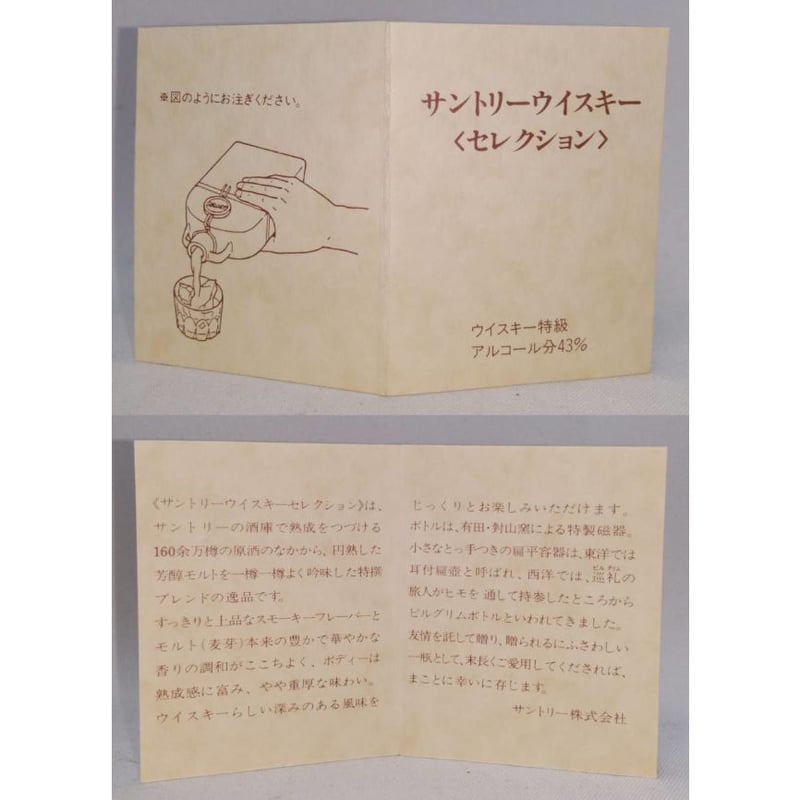 ※図のようにお注ぎください。
サントリーウイスキー
〈セレクション〉
ウイスキー特級
アルコール分43%
《サントリーウイスキーセレクション》は、
サントリーの酒庫で熟成をつづける
160余万樽の原酒のなかから、円熟した
芳醇モルトを一樽一樽よく吟味した特撰
ブレンドの逸品です。
すっきりと上品なスモーキーフレーバーと
モルト(麦芽)本来の豊かで華やかな
香りの調和がここちよく、ボディーは
熟成感に富み、やや重厚な味わい。
ウイスキーらしい深みのある風味を
じっくりとお楽しみいただけます。
ボトルは、有田・対山窯による特製磁器。
小さなとっ手つきの扁平容器は、東洋では
耳付扁壺と呼ばれ、西洋では、巡礼の
ピルグリム
旅人がヒモを通して持参したところから
ピルグリムボトルといわれてきました。
友情を託して贈り、贈られるにふさわしい
一瓶として、末長くご愛用してくだされば、
まことに幸いに存じます。
サントリー株式会社